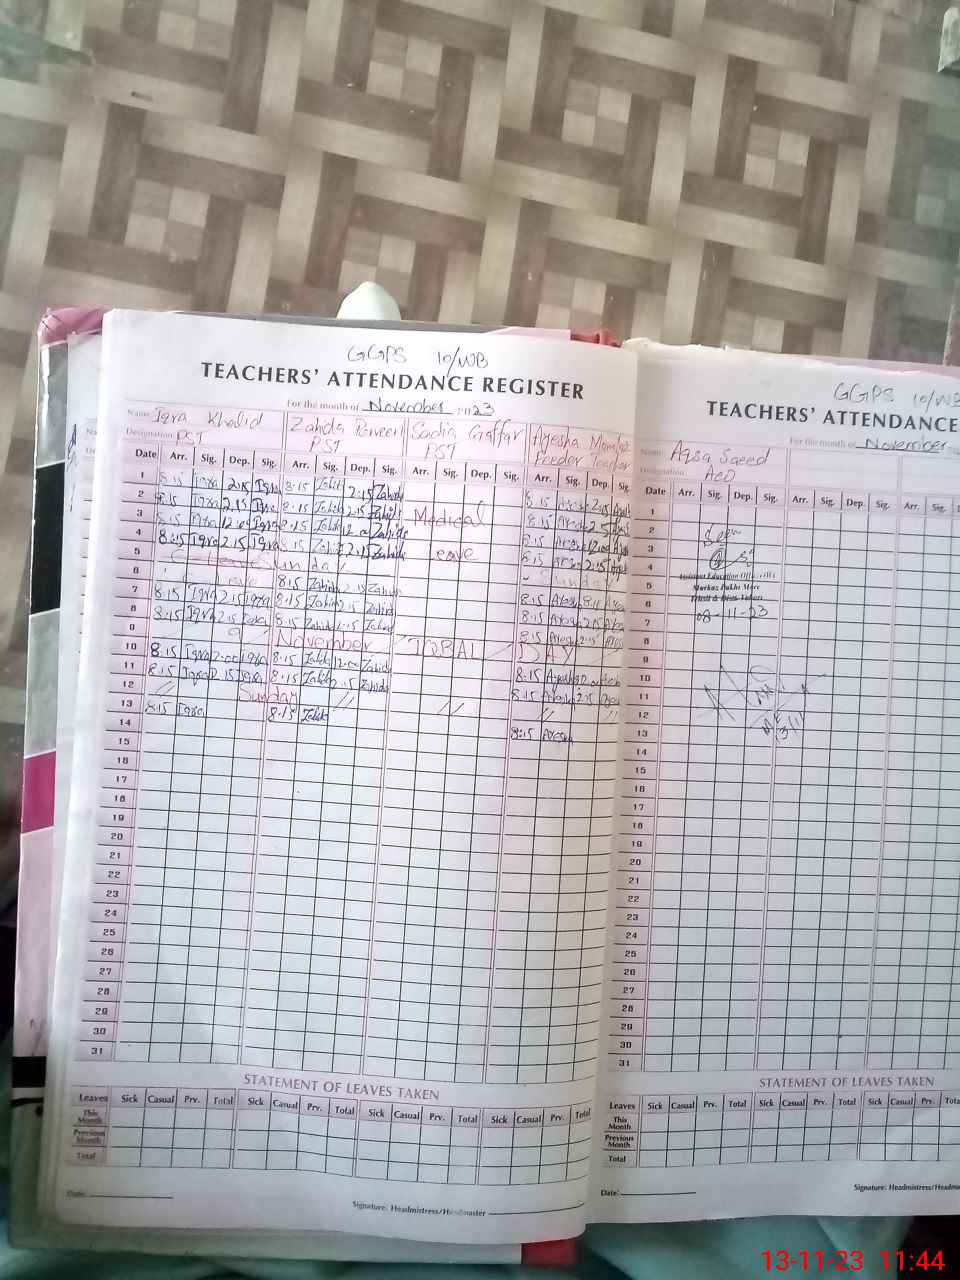 GGPS 10/WB
TEACHERS' ATTENDANCE REGISTER
For the month of November 2023
Name Iqra Khalid Zahida Parveen Sadia Gaffar Ayesha
Designation PST PST PST Feeder Teacher
Date Arr. Sig. Dep. Sig. Arr. Sig. Dep. Sig. Arr. Sig. Dep. Sig. Arr. Sig. Dep. Sig.
1 8:15 Iqra 2:15 Iqra 8:15 Zahida 2:15 Zahida 8:15 2:15
2 8:15 Iqra 2:15 Iqra 8:15 Zahida 2:15 Zahida 8:15 2:15
3 8:15 Iqra 12:00 Iqra 8:15 Zahida 12:00 Zahida Medical 8:15 12:00
4 8:15 Iqra 2:15 Iqra 8:15 Zahida 2:15 Zahida 8:15
5 Sunday Leave Sunday
6 Leave 8:15 Zahida 2:15 Zahida 8:15 Ayesha
7 8:15 Iqra 2:15 Iqra 8:15 Zahida 2:15 Zahida 8:15 Ayesha 2:15
8 8:15 Iqra 2:15 Iqra 8:15 Zahida 2:15 Zahida 8:15 Ayesha 2:15
9 9 November IQBAL DAY
10 8:15 Iqra 2:00 Iqra 8:15 Zahida 12:00 Zahida 8:15 Ayesha
11 8:15 Iqra 2:15 Iqra 8:15 Zahida 2:15 Zahida 8:15 Ayesha 2:15
12 // Sunday // // // //
13 8:15 Iqra 8:15 Zahida 8:15 Ayesha
14
15
16
17
18
19
20
21
22
23
24
25
26
27
28
29
30
31
STATEMENT OF LEAVES TAKEN
Leaves Sick Casual Prv. Total Sick Casual Prv. Total Sick Casual Prv. Total Sick Casual Prv. Total
This
Month
Previous
Month
Total
Date:
Signature: Headmistress/Headmaster
GGPS 10/WB
TEACHERS' ATTENDANCE
For the month of November
Name Aqsa Saeed
Designation AEO
Date Arr. Sig. Dep. Sig. Arr. Sig. Dep. Sig. Arr. Sig.
1
2 Seen
3
4
Assistant Education Officer
5 Markaz Pakhi Morr
6 Tehsil & Distt. Vehari
7 08-11-23
8
9
10
11
12
13
14
15
16
17
18
19
20
21
22
23
24
25
26
27
28
29
30
31
STATEMENT OF LEAVES TAKEN
Leaves Sick Casual Prv. Total Sick Casual Prv. Total Sick Casual Prv.
This
Month
Previous
Month
Total
Date:
Signature: Headmistress/
13-11-23 11:44